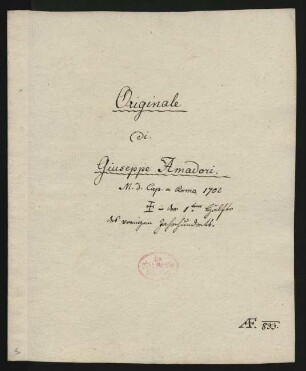 Originale
di
Giuseppe Amadori.
M. d. Cap. a Roma 1702
in der 1ten Hälfte
des vorigen Jahrhunderts.
AF. 893.